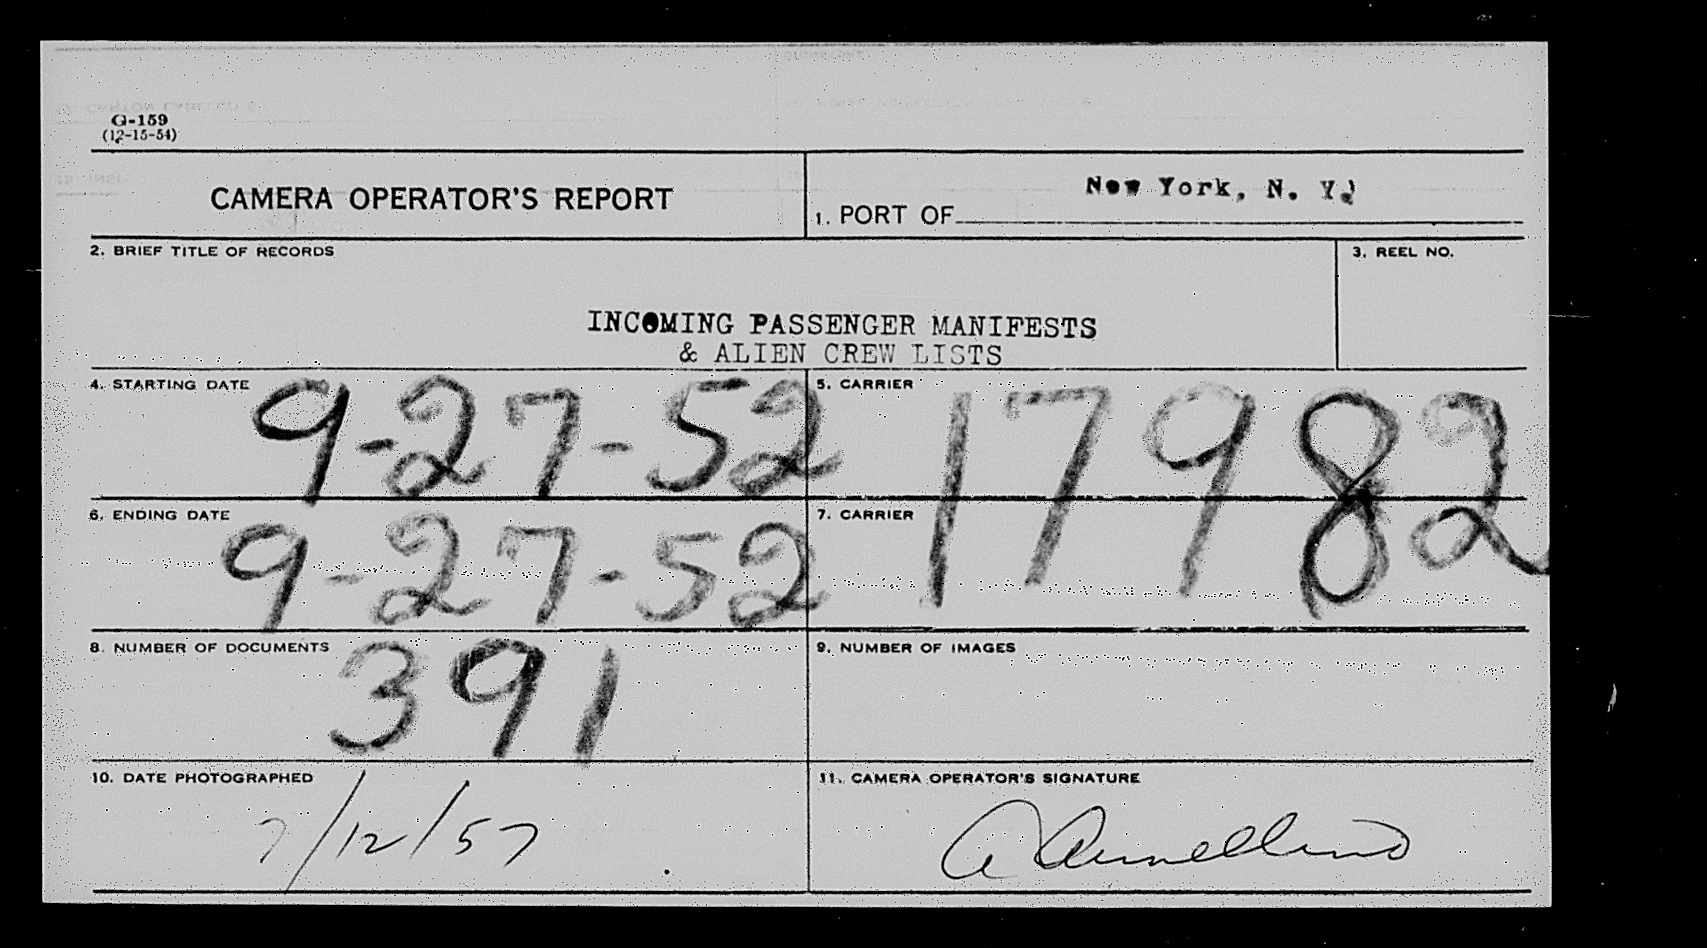 G-159
(12-15-54)
CAMERA OPERATOR'S REPORT
1. PORT OF New York, N. Y.
2. BRIEF TITLE OF RECORDS
INCOMING PASSENGER MANIFESTS
& ALIEN CREW LISTS
3. REEL NO.
4. STARTING DATE 9-27-52
5. CARRIER
17982
6. ENDING DATE 9-27-52
7. CARRIER
8. NUMBER OF DOCUMENTS 391
9. NUMBER OF IMAGES
10. DATE PHOTOGRAPHED
7/12/57
11. CAMERA OPERATOR'S SIGNATURE